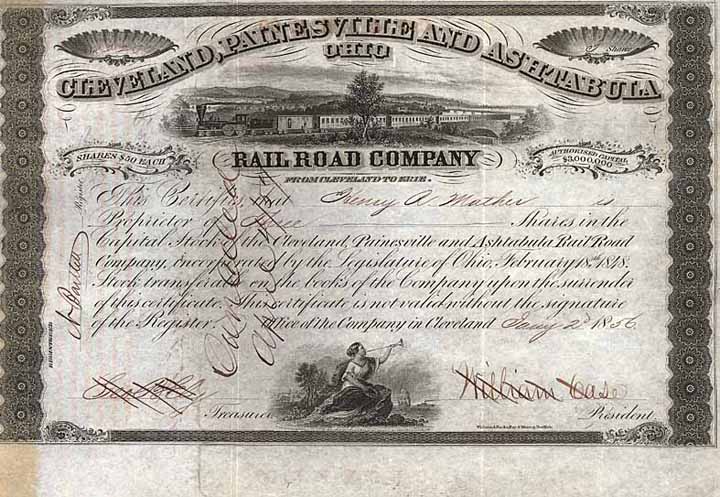 of Shares
CLEVELAND, PAINESVILLE AND ASHTABULA
OHIO
SHARES $50 EACH
RAIL ROAD COMPANY
AUTHORISED CAPITAL $3,000,000
FROM CLEVELAND TO ERIE.
This Certifies that Henry A. Mather is
Proprietor of Shares in the
Capital Stock of the Cleveland, Painesville and Ashtabula Rail Road
Company, incorporated by the Legislature of Ohio, February 18th 1848.
Stock transferable on the books of the Company upon the surrender
of this certificate. This certificate is not valid without the signature
of the Register. Office of the Company in Cleveland Jany 2d 1856
Register
REGISTERED
Cancelled
April
William Case
Treasurer
President.